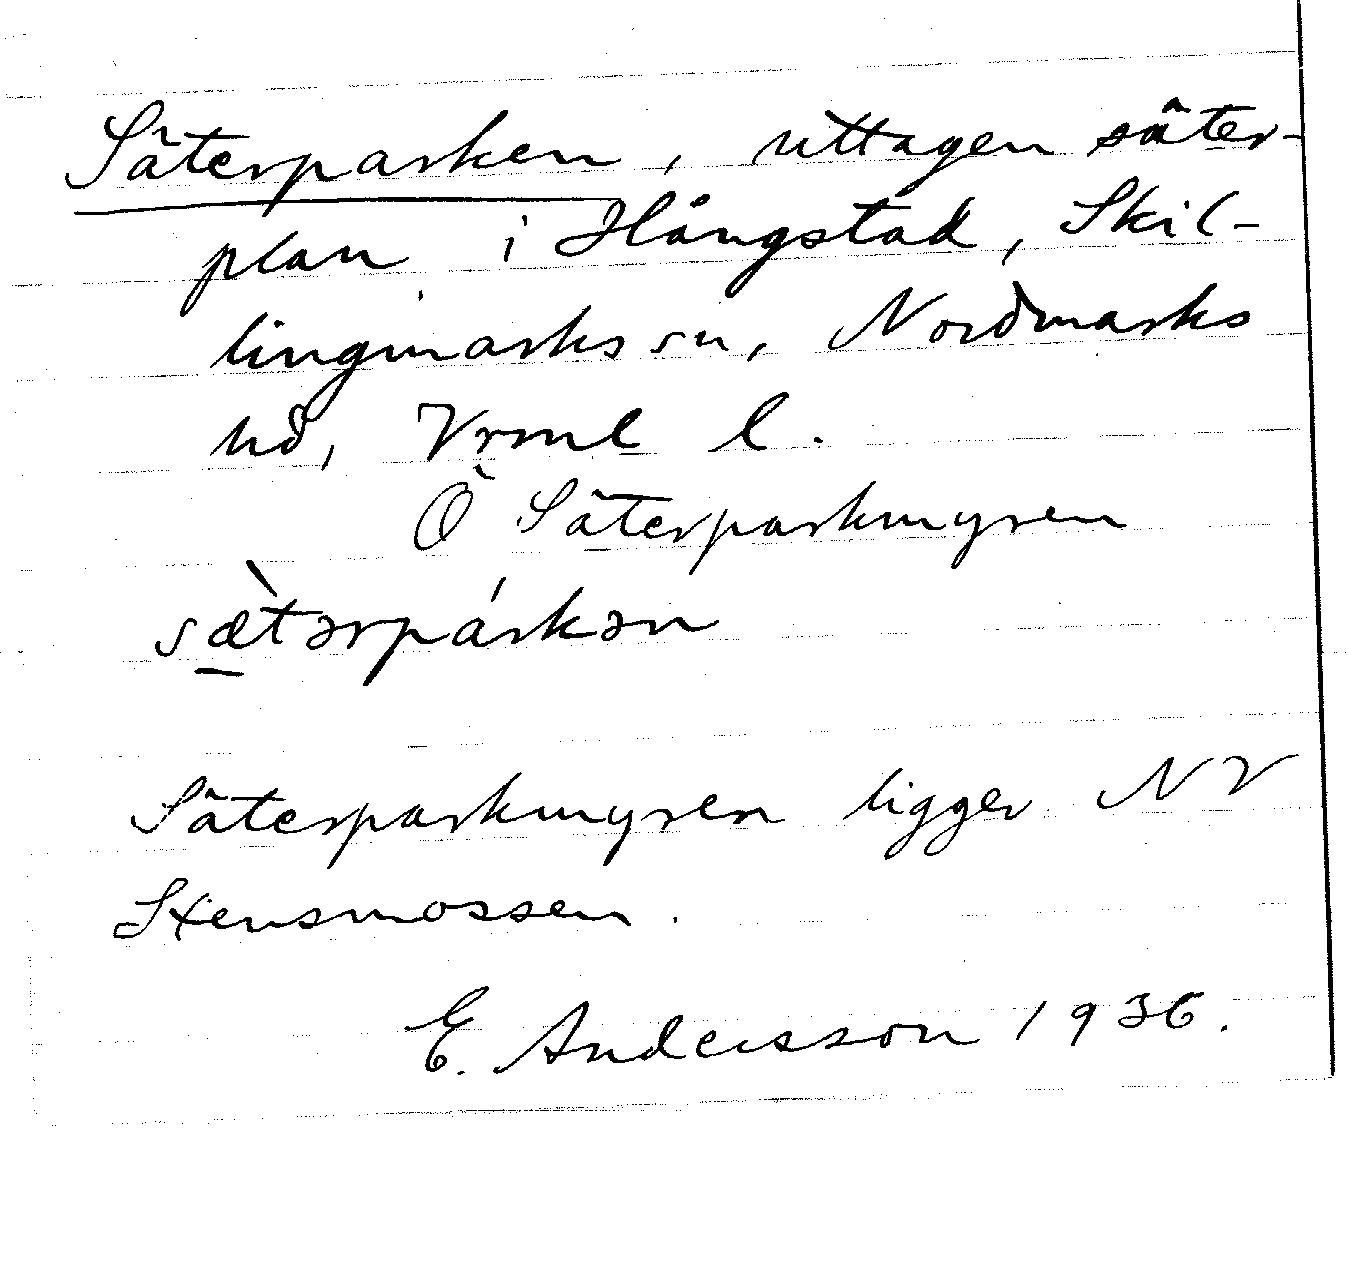 Säterparken, uttagen säter-
plan i Hångstad, Skil-
lingmarks sn, Nordmarks
hd, Vrml l.
Ö Säterparkmyren
sæ̠̀tərpárkən
Säterparkmyren ligger NV
Stensmossen.
E. Andersson 1936.